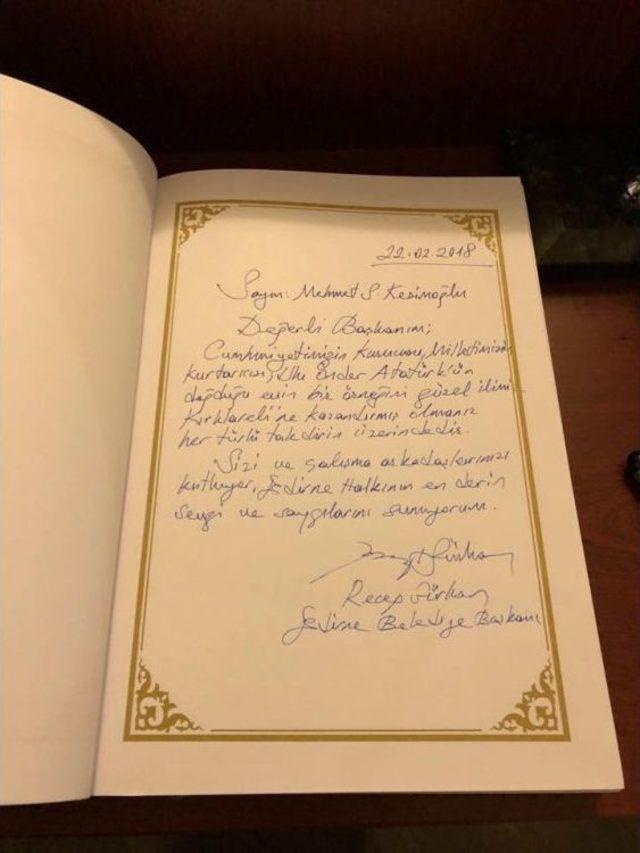 22.02.2018
Sayın: Mehmet S. Kesimoğlu
Değerli Başkanım;
Cumhuriyetimizin Kurucusu, Milletimizin
kurtarıcısı, Ulu Önder Atatürk'ün
doğduğu evin bir örneğini güzel ilimiz
Kırklareli'ne kazandırmış olmanız
her türlü takdirin üzerindedir.
Sizi ve çalışma arkadaşlarınızı
kutluyor, Edirne Halkının en derin
sevgi ve saygılarını sunuyorum.
Recep Gürkan
Edirne Belediye Başkanı